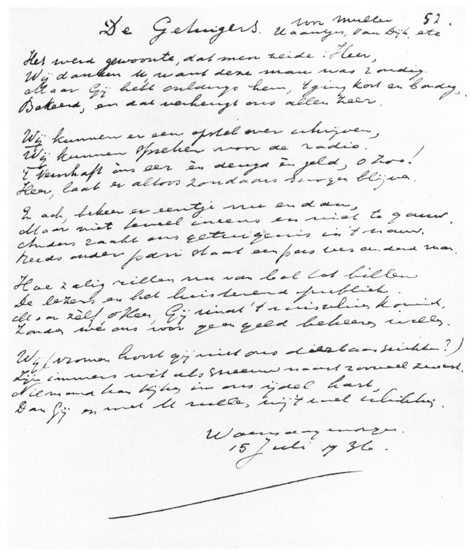 De Getuigers. voor Muller 52.
Kaantjes, Van Dijk, etc
Het werd gewoonte, dat men zeide: Heer,
Wij danken U, want deze man was zondig
Maar Gij hebt onlangs hem, 't ging kort en bondig,
Bekeerd, en dat verheugt ons allen zeer.
Wij kunnen er een opstel over schrijven,
Wij kunnen spreken voor de radio.
't Verschaft ons eer en deugd en geld, o zoo!
Heer, laat er altoos zondaars blijven.
En ach, bekeer er eentje nu en dan,
Maar niet teveel ineens en niet te gauw.
Anders raakt ons getuigenis in 't nauw.
Reeds onder pari staat een pas man.
Hoe zalig rillen nu van bol tot billen
De lezers en het luisterend publiek.
Maar zelf, o Heer, Gij vindt 't komiek,
Zonder ons voor geen geld bekeeren willen.
Wij (vromen, hoort gij niet ons ?)
Zijn immers wit als sneeuw naast zooveel zwart.
Niemand kan kijken in ons ijdel hart,
Dan Gij en met U zullen wij 't wel schikken.
Woensdagmorgen
15 Juli 1936.